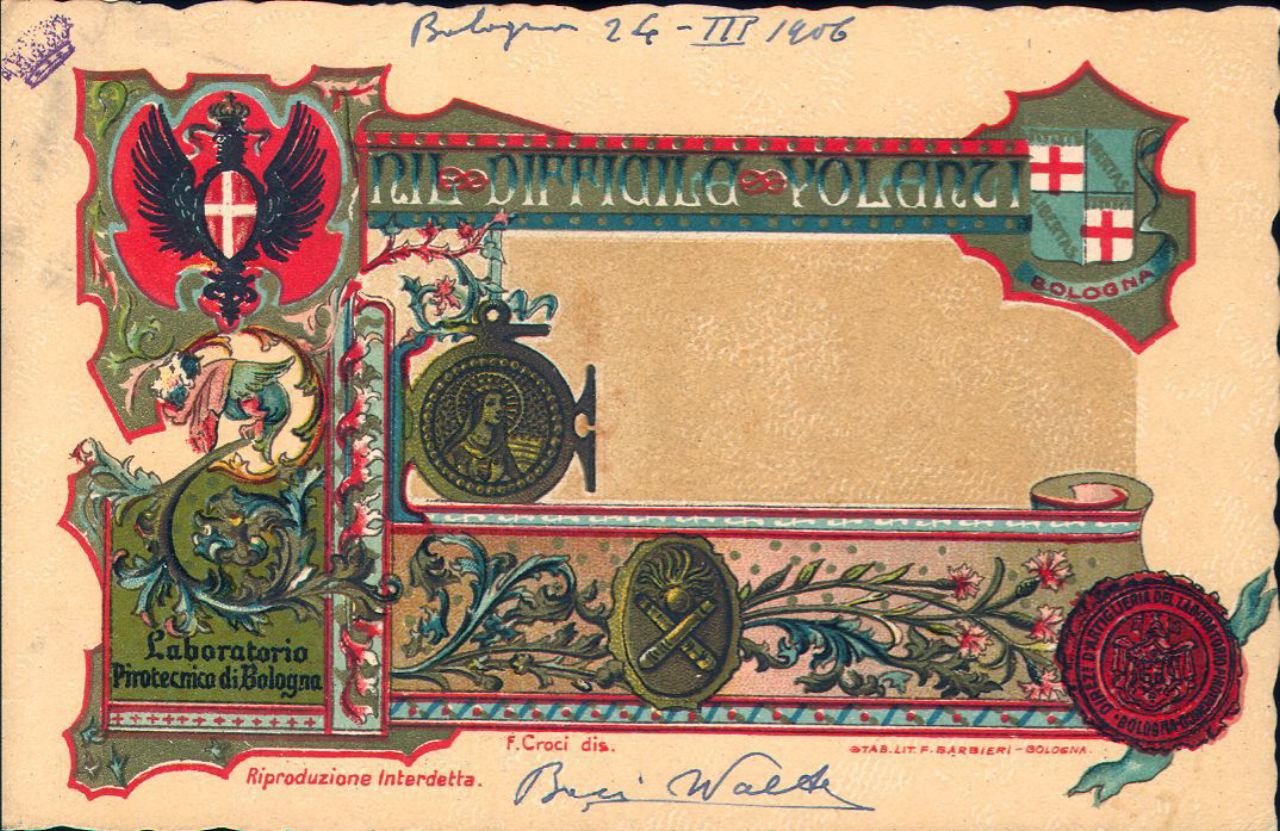 Bologna 24-III 1906
NIL DIFFICILE VOLENTI
LIBERTAS
LIBERTAS
BOLOGNA
Laboratorio
Pirotecnico di Bologna
F. Croci dis.
STAB. LIT. F. BARBIERI - BOLOGNA.
Riproduzione Interdetta.
Baci
DIREZ. D'ARTIGLIERIA DEL LABORATORIO
BOLOGNA